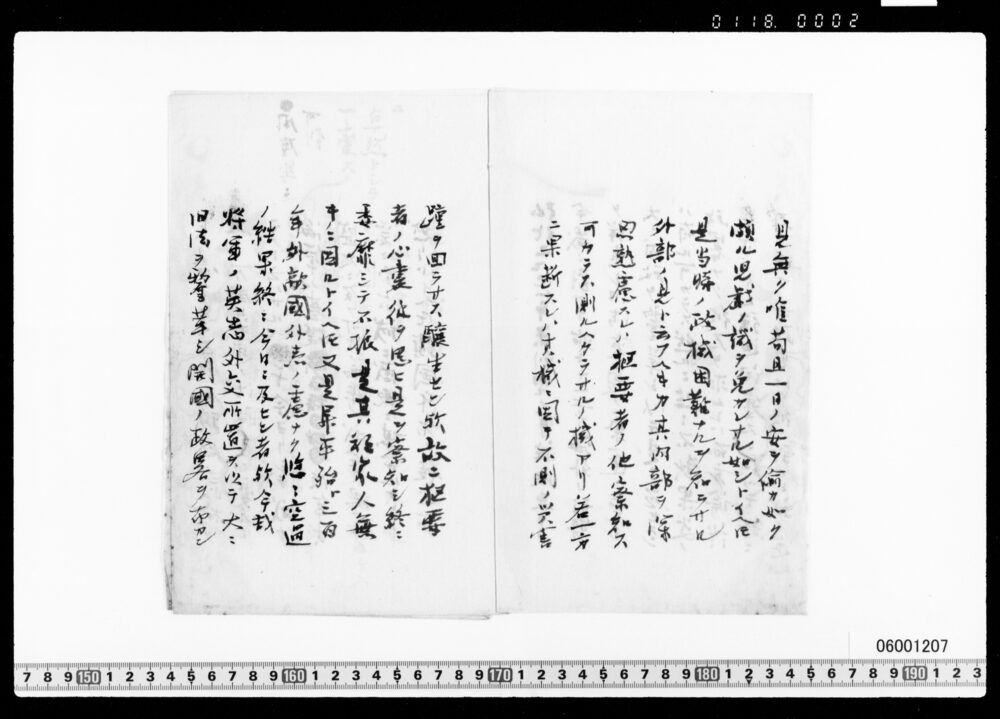 0118. 0002
見無ク唯苟且一日ノ安ヲ偸カ如ク
頗ル児戯ノ譏ヲ免カレサル如シトイヘ𪜈
是当時ノ政機困難ナルヲ知ラサル
外部ノ見ト云フヘキカ其内部ヲ深
思熟慮スレハ枢要者ノ他察知ス
可カラス測ルヘカラサルノ機アリ若一方
ニ果断スレハ其機ニ因テ不測ノ災害
踵ヲ回ラサス醸生セン歟故ニ枢要
者ノ心裏従ヲ思ヒ是ヲ察知シ終ニ
委靡シテ不振是其
キニ因ルトイヘ𪜈又是昇平殆ト三百
年外敵國外患ノ憂ナク悠々空過
ノ結果終ニ今日ニ及ヒシ者歟今哉
将軍ノ英志外交所置ヲ以テ大ニ
旧法ヲ変革シ開國ノ政畧ヲ
06001207
7 8 9 150 1 2 3 4 5 6 7 8 9 160 1 2 3 4 5 6 7 8 9 170 1 2 3 4 5 6 7 8 9 180 1 2 3 4 5 6 7 8 9 190 1 2 3